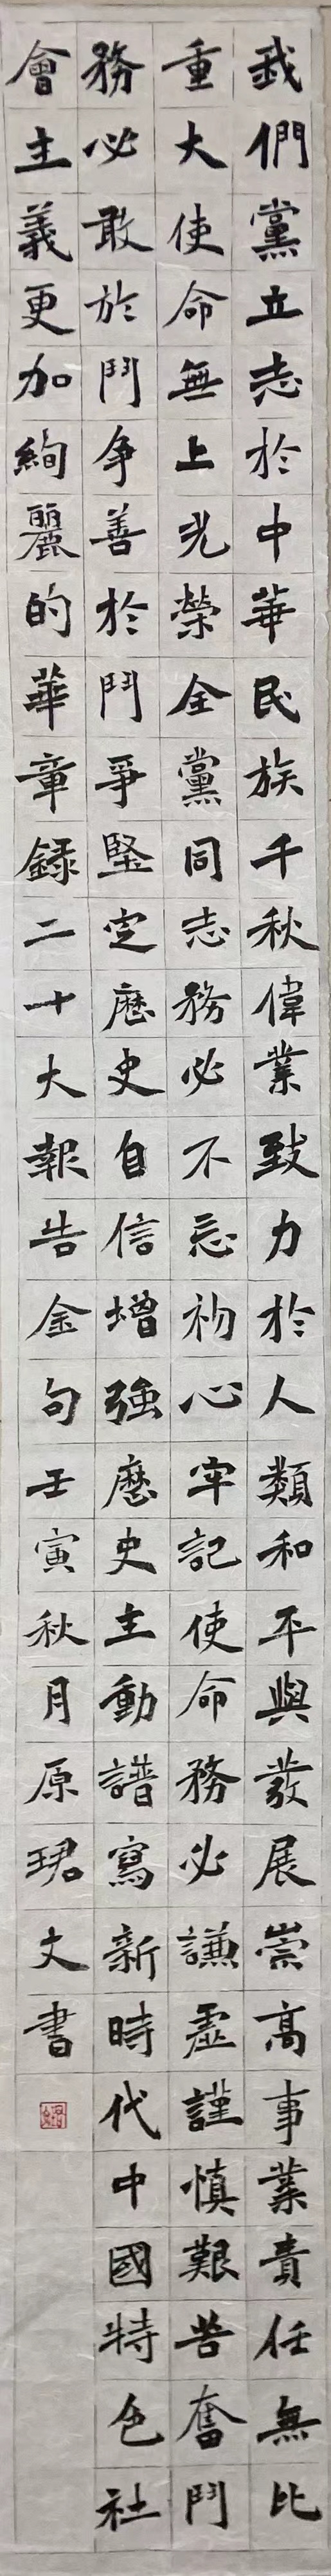 我們黨立志於中華民族千秋偉業致力於人類和平與發展崇高事業責任無比
重大使命無上光榮全黨同志務必不忘初心牢記使命務必謙虛謹慎艱苦奮鬥
務必敢於鬥争善於鬥爭堅定歷史自信增強歷史主動譜寫新時代中國特色社
會主義更加絢麗的華章録二十大報告金句壬寅秋月原珺文書